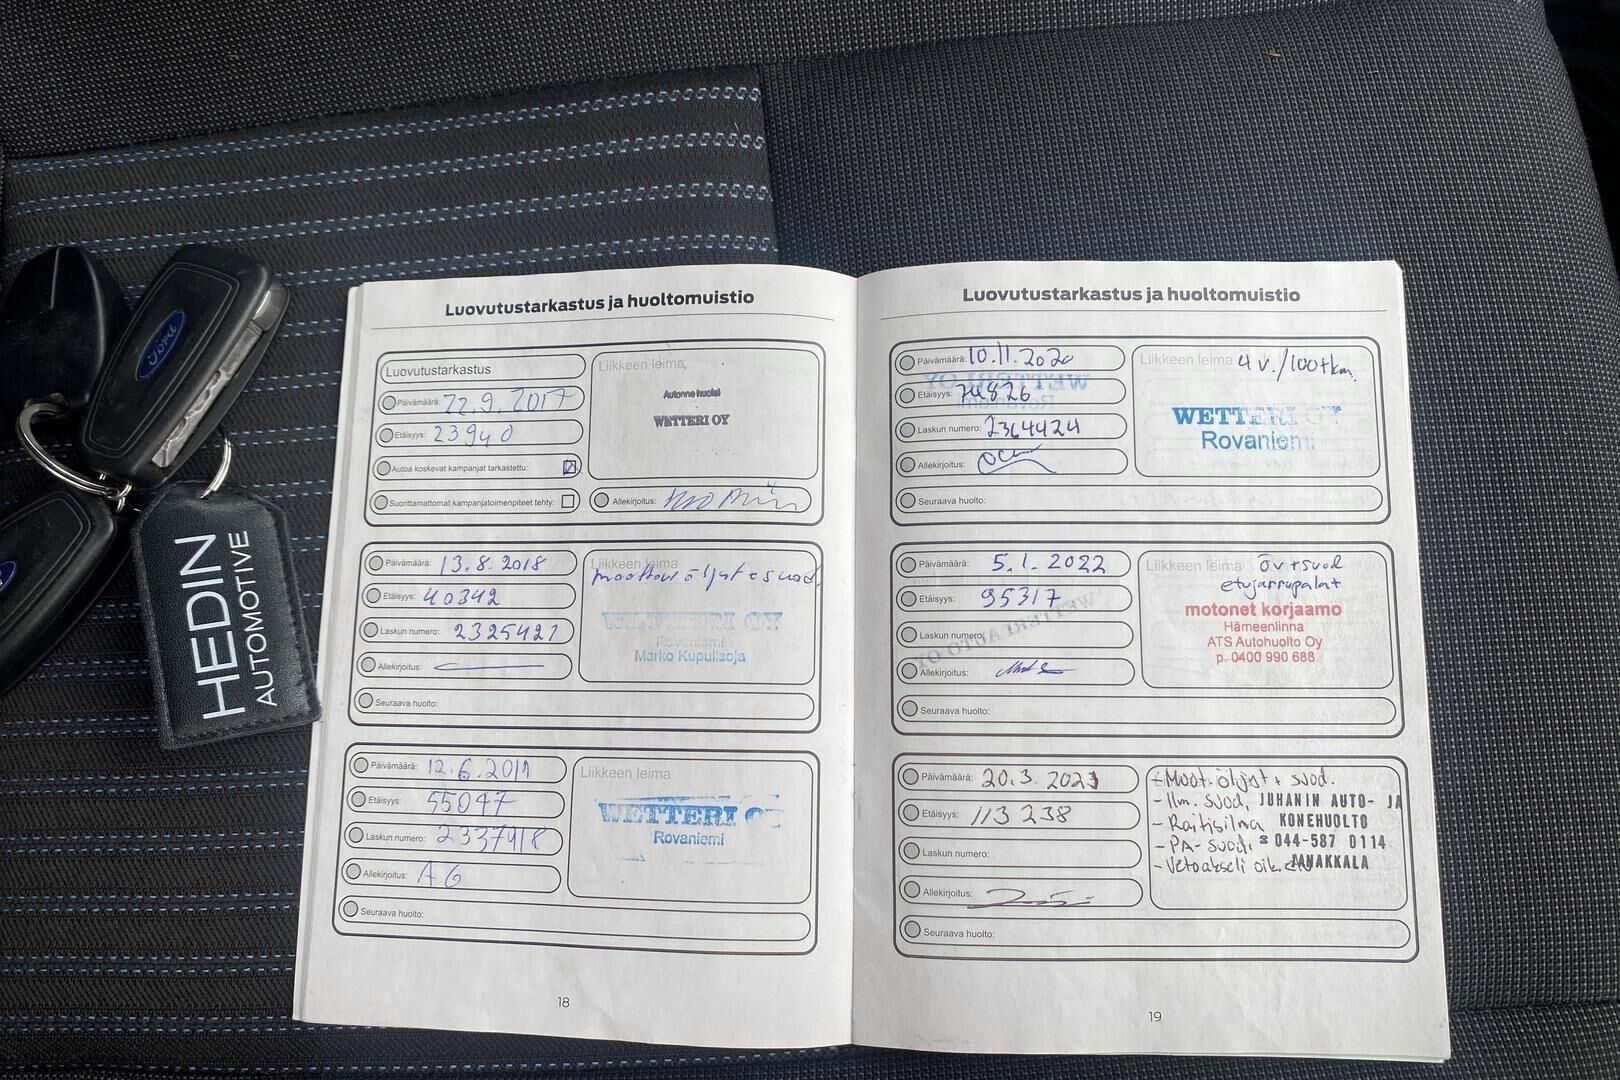 Ford
HEDIN
AUTOMOTIVE
Luovutustarkastus ja huoltomuistio
Luovutustarkastus
Päivämäärä: 22.9.2017
Etäisyys: 23940
Autoa koskevat kampanjat tarkastettu:
Suorittamattomat kampanjatoimenpiteet tehty:
Liikkeen leima
Autonne huolsi
WETTERI OY
Allekirjoitus:
Päivämäärä: 13.8.2018
Etäisyys: 40342
Laskun numero: 2325427
Allekirjoitus:
Seuraava huolto:
Liikkeen leima
moottori öljyt + suod.
WETTERI OY
Rovaniemi
Marko Kupulisoja
Päivämäärä: 12.6.2019
Etäisyys: 55047
Laskun numero: 2337918
Allekirjoitus: AG
Seuraava huolto:
Liikkeen leima
WETTERI OY
Rovaniemi
18
Luovutustarkastus ja huoltomuistio
Päivämäärä: 10.11.2020
Etäisyys: 74826
Laskun numero: 2364424
Allekirjoitus:
Seuraava huolto:
Liikkeen leima 4v./100tkm.
WETTERI OY
Rovaniemi
Päivämäärä: 5.1.2022
Etäisyys: 95317
Laskun numero:
Allekirjoitus:
Seuraava huolto:
Liikkeen leima öv+suod
etujarrupalat
motonet korjaamo
Hämeenlinna
ATS Autohuolto Oy
p. 0400 990 688
Päivämäärä: 20.3.2023
Etäisyys: 113 238
Laskun numero:
Allekirjoitus:
Seuraava huolto:
- Moot.öljyt + suod.
- Ilm. suod, JUHANIN AUTO- JA
- Raitisilma KONEHUOLTO
- PA-suod. 044-587 0114
- Vetoakseli oik. JANAKKALA
19